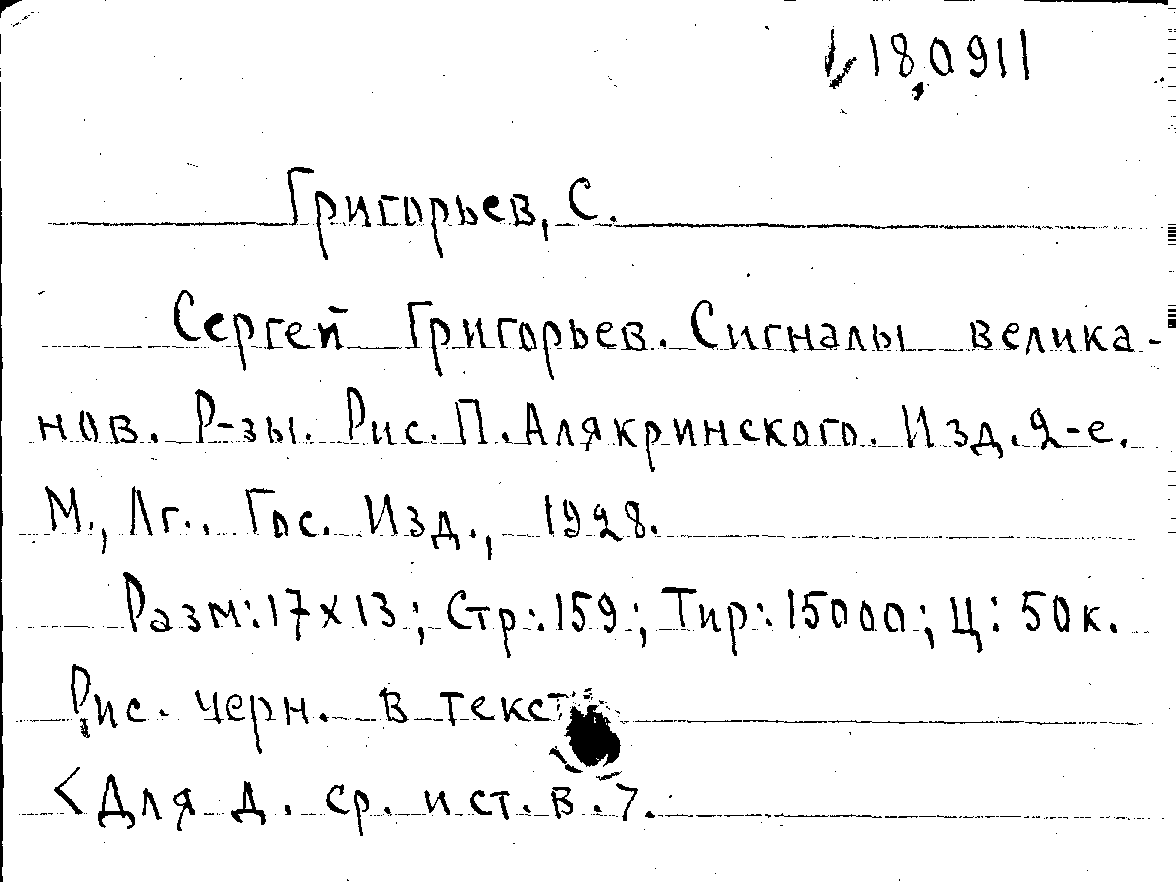 180911
Григорьев, С.
Сергей Григорьев. Сигналы велика-
нов. Р-зы. Рис. П. Алякринского. Изд. 2-е.
М., Лг., Гос. Изд., 1928.
Разм: 17х13; Стр: 159; Тир: 15000; Ц: 50к.
Рис. черн. в текст
<Для д. ср. и ст. в.>.